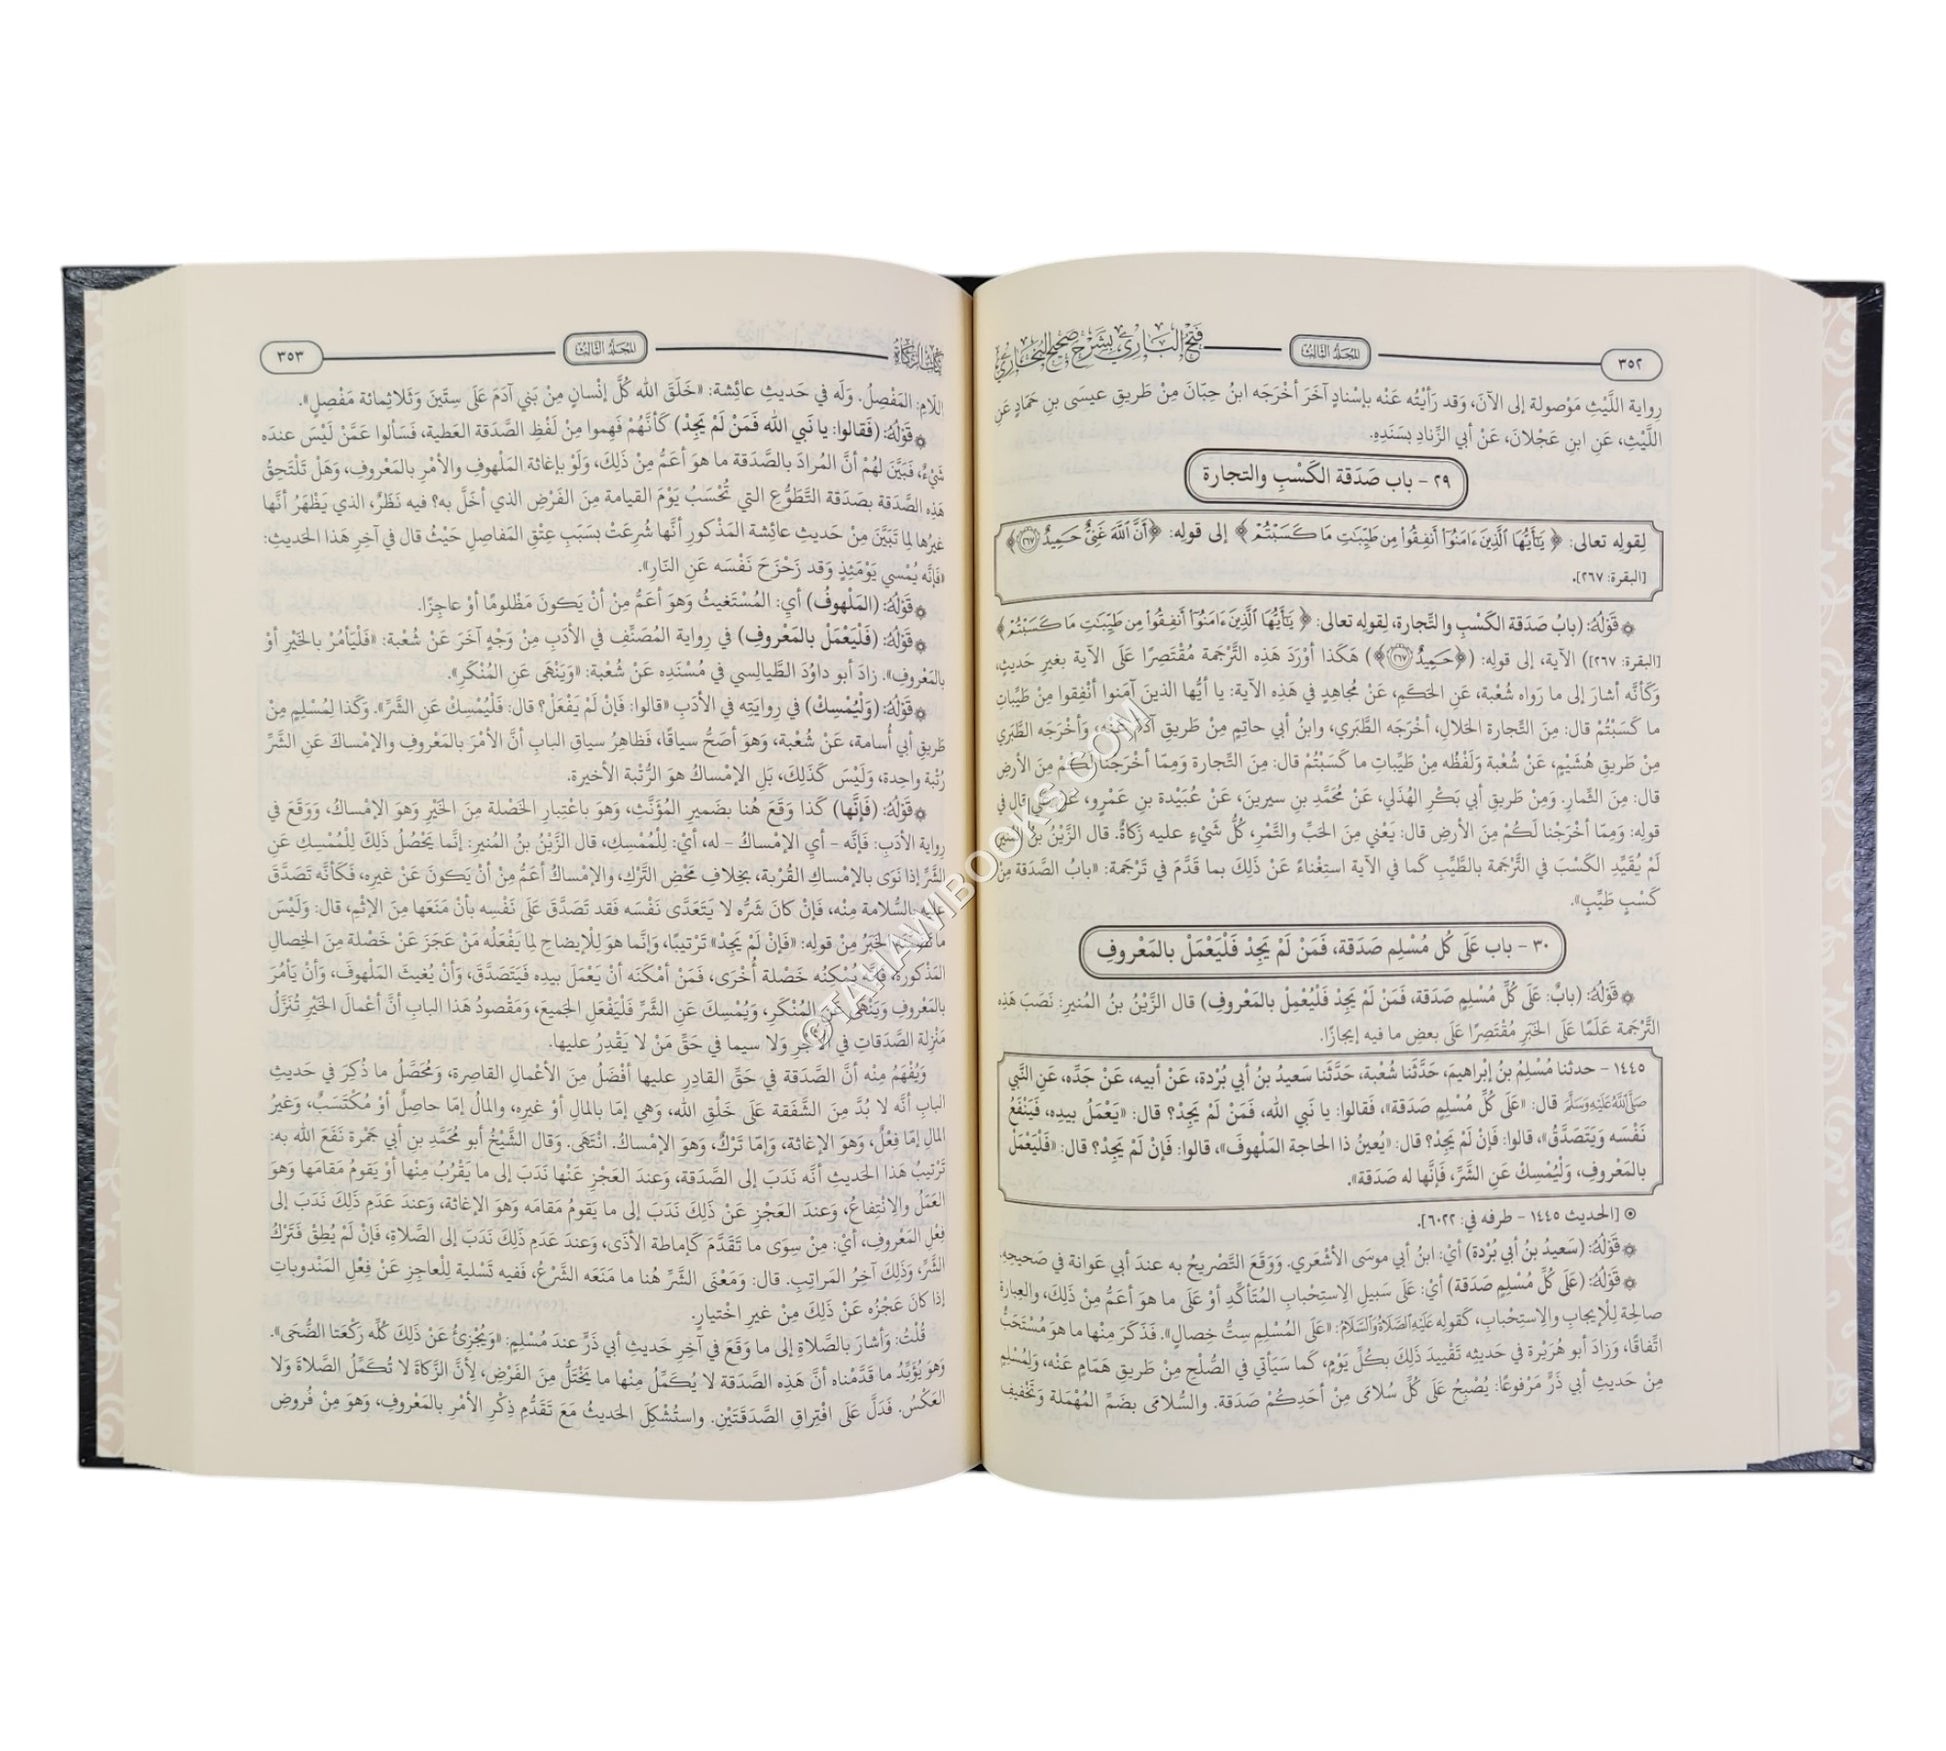 ٣٥٢
المجلد الثالث
فتح الباري بشرح صحيح البخاري
رِواية اللَّيْثِ مَوْصولة إلى الآنَ، وَقد رَأيْتُه عَنْه بإسْنادٍ آخَرَ أخْرَجَه ابنُ حِبّانَ مِنْ طَريقِ عيسَى بنِ حَمّادٍ عَنِ
اللَّيْثِ، عَنِ ابنِ عَجْلانَ، عَنْ أبي الزِّنادِ بسَنَدِه.
٢٩ - باب صَدَقة الكَسْبِ والتجارة
لِقولِه تعالى: ﴿يَٰٓأَيُّهَا ٱلَّذِينَ ءَامَنُوٓا۟ أَنفِقُوا۟ مِن طَيِّبَٰتِ مَا كَسَبْتُمْ﴾ إلى قولِه: ﴿أَنَّ ٱللَّهَ غَنِىٌّ حَمِيدٌ ٢٦٧﴾
[البقرة: ٢٦٧].
قَوْلُهُ: (بابُ صَدَقة الكَسْبِ والتِّجارة، لِقولِه تعالى: ﴿يَٰٓأَيُّهَا ٱلَّذِينَ ءَامَنُوٓا۟ أَنفِقُوا۟ مِن طَيِّبَٰتِ مَا كَسَبْتُمْ﴾
[البقرة: ٢٦٧]) الآية، إلى قولِه: (﴿حَمِيدٌ ٢٦٧﴾) هَكذا أوْرَدَ هَذِه التَّرْجَمة مُقْتَصِرًا عَلَى الآية بغيرِ حَديثٍ،
وَكَأنَّه أشارَ إلى ما رَواه شُعْبة، عَنِ الحَكَمِ، عَنْ مُجاهِدٍ في هَذِه الآية: يا أيُّها الذينَ آمَنوا أنْفِقوا مِنْ طَيِّباتِ
ما كَسَبْتُمْ قال: مِنَ التِّجارة الحَلالِ، أخْرَجَه الطَّبَري، وابنُ أبي حاتِمٍ مِنْ طَريقِ آدَمَ عَنْه، وَأخْرَجَه الطَّبَري
مِنْ طَريقِ هُشَيْمٍ، عَنْ شُعْبة وَلَفْظُه مِنْ طَيِّباتِ ما كَسَبْتُمْ قال: مِنَ التِّجارة وَمِمّا أخْرَجْنا لَكُمْ مِنَ الأرضِ
قال: مِنَ الثِّمارِ. وَمِنْ طَريقِ أبي بَكْرٍ الهُذَلي، عَنْ مُحَمَّدِ بنِ سيرينَ، عَنْ عُبَيْدة بنِ عَمْرٍو، عَنْ عَلي قال في
قولِه: وَمِمّا أخْرَجْنا لَكُمْ مِنَ الأرضِ قال: يَعْني مِنَ الحَبِّ والتَّمْرِ، كُلُّ شَيْءٍ عليه زَكاةٌ. قال الزَّيْنُ بنُ المُنيرِ:
لَمْ يُقَيِّدِ الكَسْبَ في التَّرْجَمة بالطَّيِّبِ كَما في الآية استِغْناءً عَنْ ذَلِكَ بما قَدَّمَ في تَرْجَمة: «بابُ الصَّدَقة مِنْ
كَسْبٍ طَيِّبٍ».
٣٠ - باب عَلَى كُلِّ مُسْلِم صَدَقة، فَمَنْ لَمْ يَجِدْ فَلْيَعْمَلْ بالمَعْروفِ
قَوْلُهُ: (بابٌ: عَلَى كُلِّ مُسْلِمٍ صَدَقة، فَمَنْ لَمْ يَجِدْ فَلْيَعْمِلْ بالمَعْروفِ) قال الزَّيْنُ بنُ المُنيرِ: نَصَبَ هَذِه
التَّرْجَمة عَلَمًا عَلَى الخَبَرِ مُقْتَصِرًا عَلَى بعضِ ما فيه إيجازًا.
١٤٤٥ - حدثنا مُسْلِمُ بنُ إبْراهيمَ، حَدَّثَنا شُعْبة، حَدَّثَنا سَعيدُ بنُ أبي بُرْدة، عَنْ أبيه، عَنْ جَدِّه، عَنِ النَّبي
صَلَّى اللَّهُ عَلَيْهِ وَسَلَّمَ قال: «عَلَى كُلِّ مُسْلِمٍ صَدَقة»، فَقالوا: يا نَبي الله، فَمَنْ لَمْ يَجِدْ؟ قال: «يَعْمَلُ بيدِه، فَيَنْفَعُ
نَفْسَه وَيَتَصَدَّقُ»، قالوا: فَإنْ لَمْ يَجِدْ؟ قال: «يُعينُ ذا الحاجة المَلْهوفَ»، قالوا: فَإنْ لَمْ يَجِدْ؟ قال: «فَلْيَعْمَلْ
بالمَعْروفِ، وَلْيُمْسِكْ عَنِ الشَّرِّ، فَإنَّها له صَدَقة».
[الحديث ١٤٤٥ - طرفه في: ٦٠٢٢].
قَوْلُهُ: (سَعيدُ بنُ أبي بُرْدة) أيْ: ابنُ أبي موسَى الأشْعَري. وَوَقَعَ التَّصْريحُ به عندَ أبي عَوانة في صَحيحِه.
قَوْلُهُ: (عَلَى كُلِّ مُسْلِمٍ صَدَقة) أيْ: عَلَى سَبيلِ الِاستِحْبابِ المُتَأكِّدِ أوْ عَلَى ما هو أعَمُّ مِنْ ذَلِكَ، والعِبارة
صالِحة لِلْإيجابِ والِاستِحْبابِ، كَقولِه عَلَيْهِ الصَّلَاةُ وَالسَّلَامُ: «عَلَى المُسْلِمِ سِتُّ خِصالٍ». فَذَكَرَ مِنْها ما هو مُسْتَحَبٌّ
اتِّفاقًا، وَزادَ أبو هُرَيْرة في حَديثِه تَقْييدَ ذَلِكَ بكُلِّ يَوْمٍ، كَما سَيَأتي في الصُّلْحِ مِنْ طَريقِ هَمّامٍ عَنْه، وَلِمُسْلِمٍ
مِنْ حَديثِ أبي ذَرٍّ مَرْفوعًا: يُصْبِحُ عَلَى كُلِّ سُلامَى مِنْ أحَدِكُمْ صَدَقة. والسُّلامَى بضَمِّ المُهْمَلة وَتَخْفيفِ
كتاب الزكاة
المجلد الثالث
٣٥٣
اللّامِ: المَفْصِلُ. وَلَه في حَديثِ عائِشة: «خَلَقَ الله كُلَّ إنْسانٍ مِنْ بَني آدَمَ عَلَى سِتّينَ وَثَلاثِمائة مَفْصِلٍ».
قَوْلُهُ: (فَقالوا: يا نَبي الله فَمَنْ لَمْ يَجِدْ) كَأنَّهُمْ فَهِموا مِنْ لَفْظِ الصَّدَقة العَطية، فَسَألوا عَمَّنْ لَيْسَ عندَه
شَيْءٌ، فَبَيَّنَ لَهُمْ أنَّ المُرادَ بالصَّدَقة ما هو أعَمُّ مِنْ ذَلِكَ، وَلَوْ بإغاثة المَلْهوفِ والأمْرِ بالمَعْروفِ، وَهَلْ تَلْتَحِقُ
هَذِه الصَّدَقة بصَدَقة التَّطَوُّعِ التي تُحْسَبُ يَوْمَ القيامة مِنَ الفَرْضِ الذي أخَلَّ به؟ فيه نَظَرٌ، الذي يَظْهَرُ أنَّها
غيرُها لِما تَبَيَّنَ مِنْ حَديثِ عائِشة المَذْكورِ أنَّها شُرِعَتْ بسَبَبِ عِتْقِ المَفاصِلِ حَيْثُ قال في آخِرِ هَذا الحَديثِ:
«فَإنَّه يُمْسي يَوْمَئِذٍ وَقد زَحْزَحَ نَفْسَه عَنِ النّارِ».
قَوْلُهُ: (المَلْهوفُ) أيِ: المُسْتَغيثُ وَهوَ أعَمُّ مِنْ أنْ يَكونَ مَظْلومًا أوْ عاجِزًا.
قَوْلُهُ: (فَلْيَعْمَلْ بالمَعْروفِ) في رِواية المُصَنِّفِ في الأدَبِ مِنْ وَجْهٍ آخَرَ عَنْ شُعْبة: «فَلْيَأمُرْ بالخَيْرِ أوْ
بالمَعْروفِ». زادَ أبو داوُدَ الطَّيالِسي في مُسْنَدِه عَنْ شُعْبة: «وَيَنْهَى عَنِ المُنْكَرِ».
قَوْلُهُ: (وَلْيُمْسِكْ) في رِوايَتِه في الأدَبِ «قالوا: فَإنْ لَمْ يَفْعَلْ؟ قال: فَلْيُمْسِكْ عَنِ الشَّرِّ». وَكَذا لِمُسْلِمٍ مِنْ
طَريقِ أبي أُسامة، عَنْ شُعْبة، وَهوَ أصَحُّ سياقًا، فَظاهِرُ سياقِ البابِ أنَّ الأمْرَ بالمَعْروفِ والإمْساكَ عَنِ الشَّرِّ
رُتْبة واحِدة، وَلَيْسَ كَذَلِكَ، بَلِ الإمْساكُ هوَ الرُّتْبة الأخيرة.
قَوْلُهُ: (فَإنَّها) كَذا وَقَعَ هُنا بضَميرِ المُؤَنَّثِ، وَهوَ باعْتِبارِ الخَصْلة مِنَ الخَيْرِ وَهوَ الإمْساكُ، وَوَقَعَ في
رِواية الأدَبِ: فَإنَّه - أيِ الإمْساكُ - له، أيْ: لِلْمُمْسِكِ، قال الزَّيْنُ بنُ المُنيرِ: إنَّما يَحْصُلُ ذَلِكَ لِلْمُمْسِكِ عَنِ
الشَّرِّ إذا نَوَى بالإمْساكِ القُرْبة، بخِلافِ مَحْضِ التَّرْكِ، والإمْساكُ أعَمُّ مِنْ أنْ يَكونَ عَنْ غيرِه، فَكَأنَّه تَصَدَّقَ
عليه بالسَّلامة مِنْه، فَإنْ كانَ شَرُّه لا يَتَعَدَّى نَفْسَه فَقد تَصَدَّقَ عَلَى نَفْسِه بأنْ مَنَعَها مِنَ الإثْمِ، قال: وَلَيْسَ
ما تَضَمَّنَه الخَبَرُ مِنْ قولِه: «فَإنْ لَمْ يَجِدْ» تَرْتيبًا، وَإنَّما هوَ لِلْإيضاحِ لِما يَفْعَلُه مَنْ عَجَزَ عَنْ خَصْلة مِنَ الخِصالِ
المَذْكورة، فَإنَّه يُمْكِنُه خَصْلة أُخْرَى، فَمَنْ أمْكَنَه أنْ يَعْمَلَ بيدِه فَيَتَصَدَّقَ، وَأنْ يُغيثَ المَلْهوفَ، وَأنْ يَأمُرَ
بالمَعْروفِ وَيَنْهَى عَنِ المُنْكَرِ، وَيُمْسِكَ عَنِ الشَّرِّ فَلْيَفْعَلِ الجَميعَ، وَمَقْصودُ هَذا البابِ أنَّ أعْمالَ الخَيْرِ تُنَزَّلُ
مَنْزِلة الصَّدَقاتِ في الأجْرِ وَلا سيما في حَقِّ مَنْ لا يَقْدِرُ عليها.
وَيُفْهَمُ مِنْه أنَّ الصَّدَقة في حَقِّ القادِرِ عليها أفْضَلُ مِنَ الأعْمالِ القاصِرة، وَمُحَصَّلُ ما ذُكِرَ في حَديثِ
البابِ أنَّه لا بُدَّ مِنَ الشَّفَقة عَلَى خَلْقِ الله، وَهي إمّا بالمالِ أوْ غيرِه، والمالُ إمّا حاصِلٌ أوْ مُكْتَسَبٌ، وَغيرُ
المالِ إمّا فِعْلٌ، وَهوَ الإغاثة، وَإمّا تَرْكٌ، وَهوَ الإمْساكُ. انْتَهَى. وَقال الشَّيْخُ أبو مُحَمَّدِ بنِ أبي جَمْرة نَفَعَ الله به:
تَرْتيبُ هَذا الحَديثِ أنَّه نَدَبَ إلى الصَّدَقة، وَعندَ العَجْزِ عَنْها نَدَبَ إلى ما يَقْرُبُ مِنْها أوْ يَقومُ مَقامَها وَهوَ
العَمَلُ والِانْتِفاعُ، وَعندَ العَجْزِ عَنْ ذَلِكَ نَدَبَ إلى ما يَقومُ مَقامَه وَهوَ الإغاثة، وَعندَ عَدَمِ ذَلِكَ نَدَبَ إلى
فِعْلِ المَعْروفِ، أيْ: مِنْ سِوَى ما تَقَدَّمَ كَإماطة الأذَى، وَعندَ عَدَمِ ذَلِكَ نَدَبَ إلى الصَّلاةِ، فَإنْ لَمْ يُطِقْ فَتَرْكُ
الشَّرِّ، وَذَلِكَ آخِرُ المَراتِبِ. قال: وَمَعْنَى الشَّرِّ هُنا ما مَنَعَه الشَّرْعُ، فَفيه تَسْلية لِلْعاجِزِ عَنْ فِعْلِ المَنْدوباتِ
إذا كانَ عَجْزُه عَنْ ذَلِكَ مِنْ غيرِ اخْتيارٍ.
قُلْتُ: وَأشارَ بالصَّلاة إلى ما وَقَعَ في آخِرِ حَديثِ أبي ذَرٍّ عندَ مُسْلِمٍ: «وَيُجْزِئُ عَنْ ذَلِكَ كُلِّه رَكْعَتا الضُّحَى».
وَهوَ يُؤَيِّدُ ما قَدَّمْناه أنَّ هَذِه الصَّدَقة لا يُكَمَّلُ مِنْها ما يَخْتَلُّ مِنَ الفَرْضِ، لِأنَّ الزَّكاة لا تُكَمِّلُ الصَّلاة وَلا
العَكْسُ. فَدَلَّ عَلَى افْتِراقِ الصَّدَقَتَيْنِ. واستُشْكِلَ الحَديثُ مَعَ تَقَدُّمِ ذِكْرِ الأمْرِ بالمَعْروفِ، وَهوَ مِنْ فُروضِ
©TAHAWIBOOKS.COM